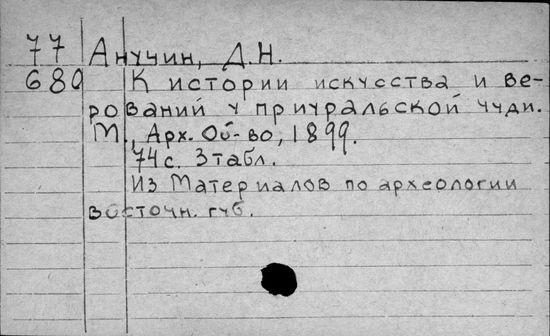 77 Анучин, Д.Н.
680 К истории искусства и ве-
рований у приуральской чуди.
М., Арх. Об-во, 1899.
74 с. 3 табл.
Из Материалов по археологии
восточн. губ.